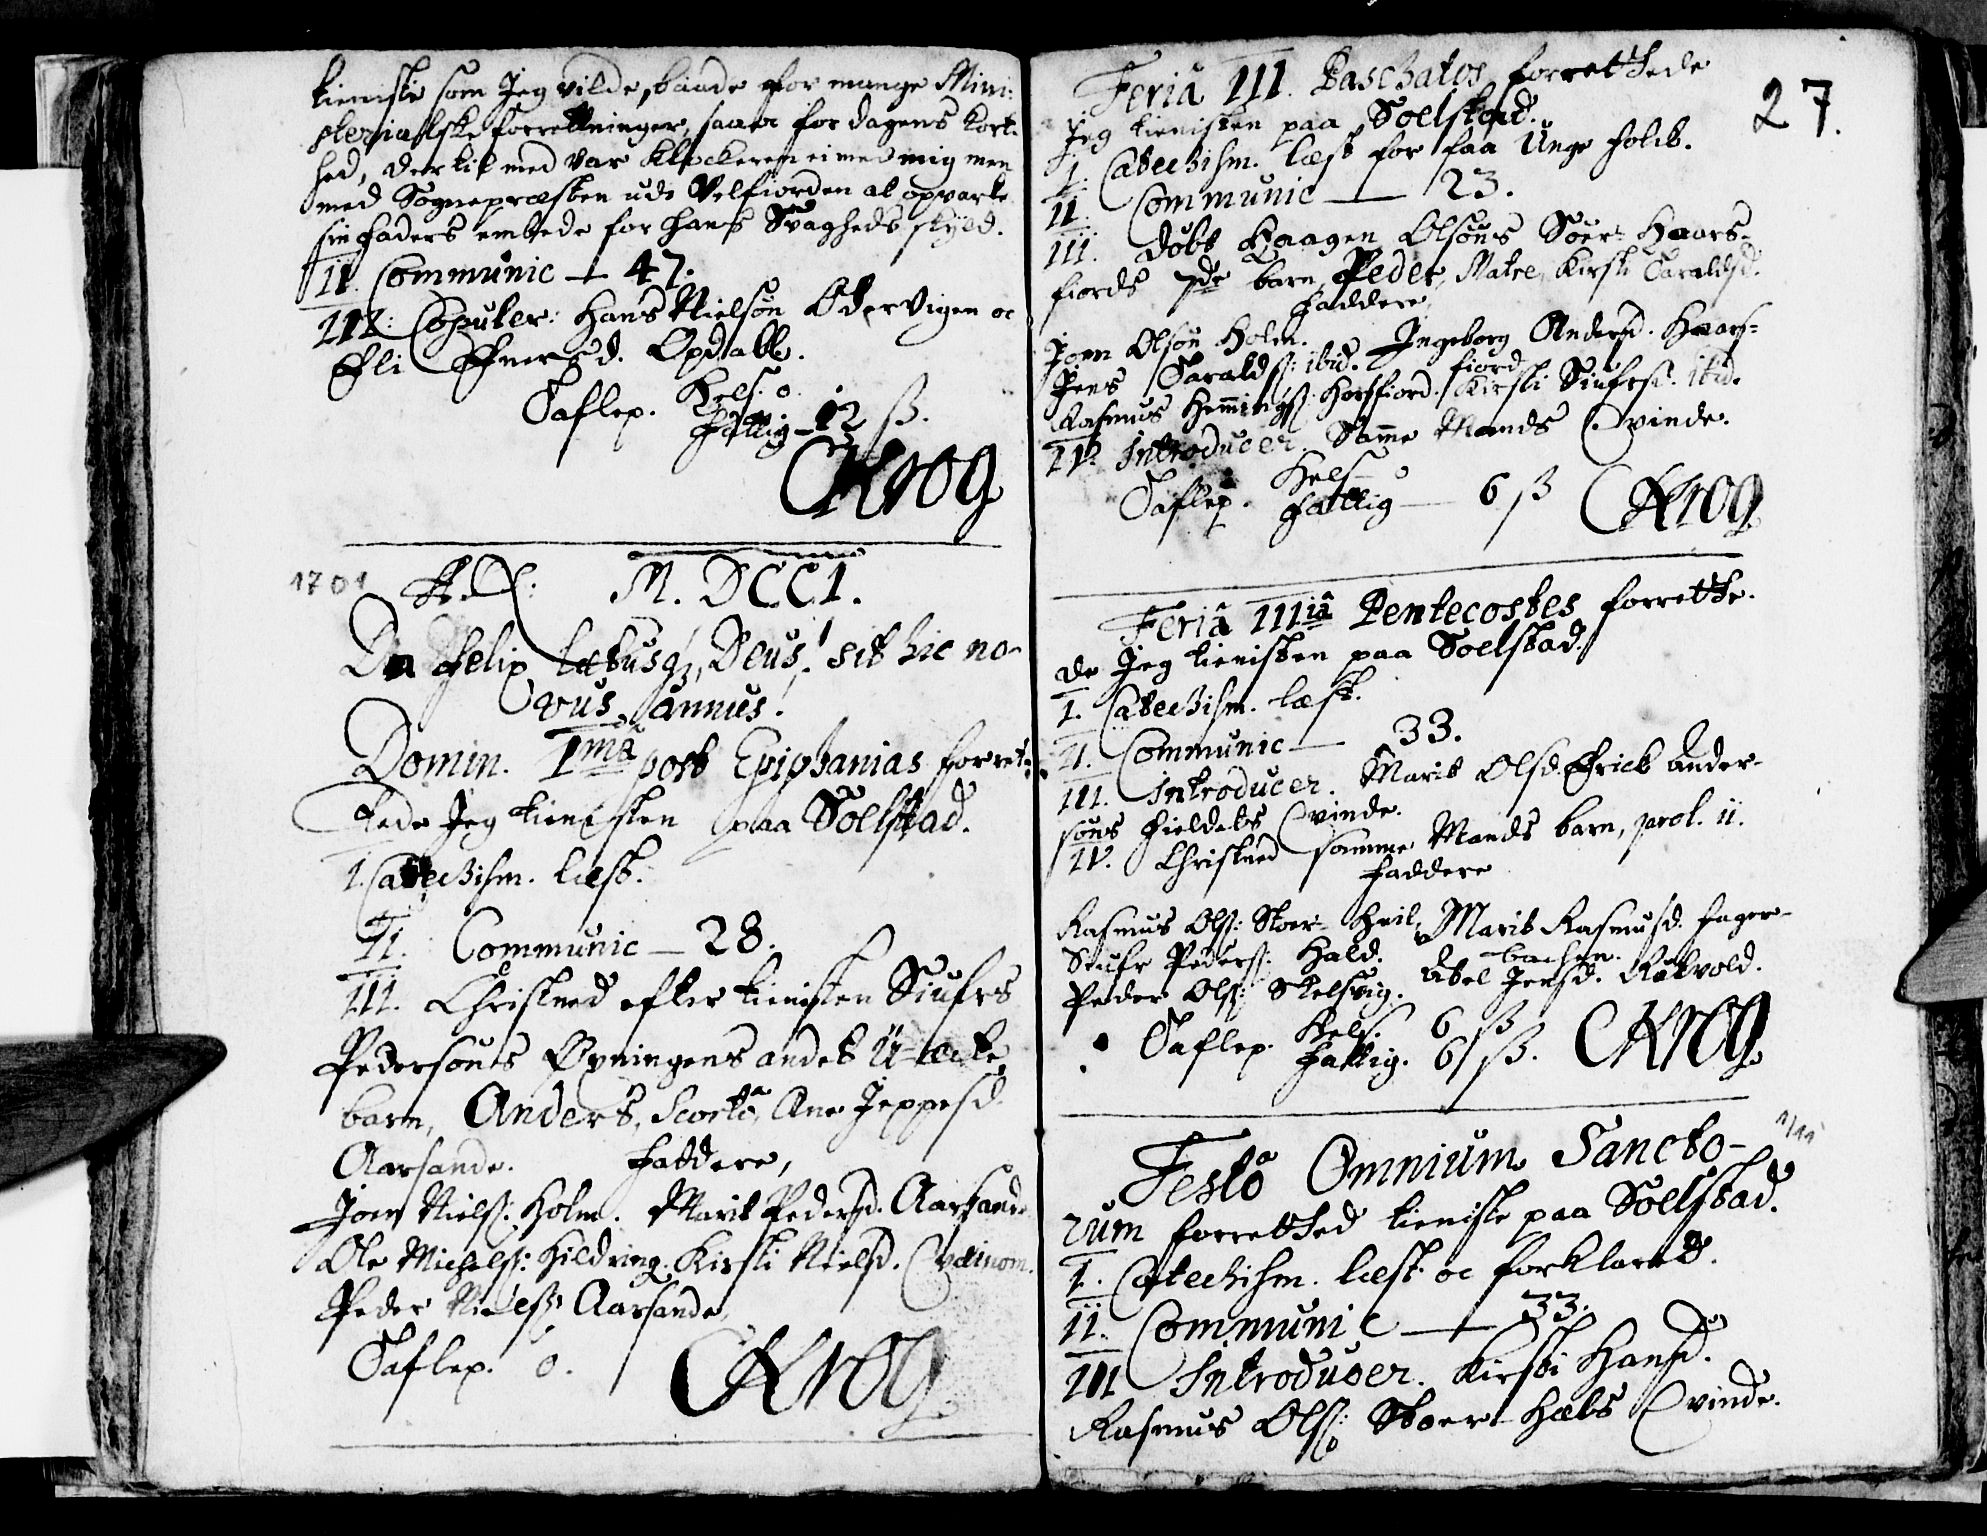 tieniste som Jeg vilde, baade for mange Mini-
sterialske forretninger, saa oc for dagens kort-
hed, der til med var Klockeren ei med mig men
med Sognepræsten udi Velfiorden at opvarte
sin Faders embede for hans Svagheds skyld.
II. Communic — 47.
III: Copuler: Hans Nielsøn Odervigen oc
Eli Efversd. Opdall.
Taflep. Kels. 0.
Fattig — 12 ß.
CKrog
1701
M. DCC1.
Da felix lætusq;, Deus! sit hic no-
vus annus!
Domin. 1mâ post Epiphanias forret-
tede Jeg tienisten paa Sœlstad.
I. Catechism. læst.
II. Communic — 28.
III. Christned efter tienisten Siufrs
Pedersøns Øvningens andet U-ecte
barn, Anders, Scortô, Ane Jeppesd.
Aarsande. Faddere,
Joen Nielss: Holm. Marit Pedersd. Aarsande
Ole Michelss: Hildring. Kirsti Nielsd. Qvæinom.
Peder Nielss: Aarsande.
Taflep. 0. CKrog
27.
Feriâ III. Paschatos forrettede
Jeg tienisten paa Sœlstad.
I. Catechism. læst for faa Unge folck.
II. Communic — 23.
III. døbt Haagen Olsøns Sør-Haars-
fiords 7de barn, Peder, Matre, Kirsti Taraldsd.
Faddere
Joen Olsøn Holm. Ingeborg Andersd. Haars-
fiord
Jens Taraldss: ibid. Kirsti Siufrsd. ibid.
Rasmus Hemmingss: Horsfiord.
IV. Introducer. Samme Mands Qvinde.
Taflep. Kels — 0
Fattig — 6 ß CKrog
Feriâ IIIiâ Pentecostes forrette-
de Jeg tienisten paa Sœlstad.
I. Catechism. læst.
II. Communic — 33.
III. Introducer. Marit Olsd. Erick Ander-
søns Fieldets Qvinde.
IV. Christned samme Mands barn, prol. ii.
Faddere
Rasmus Olss: Stoer-Hvil. Marit Rasmusd. Fager-
backen.
Siufr Pederss: Hald. Abel Jensd. Røtvold.
Peder Olss: Skelsvig.
Taflep. Kels. 6 ß
Fattig. 6 ß. CKrog
1/11
Festô Omnium Sancto-
rum forretted tieniste paa Sœlstad.
I. Catechism. læst oc forklaret.
II. Communic — 33.
III Introducer. Kirsti Hansd.
Rasmus Olss: Stoer-Hæts Qvinde.